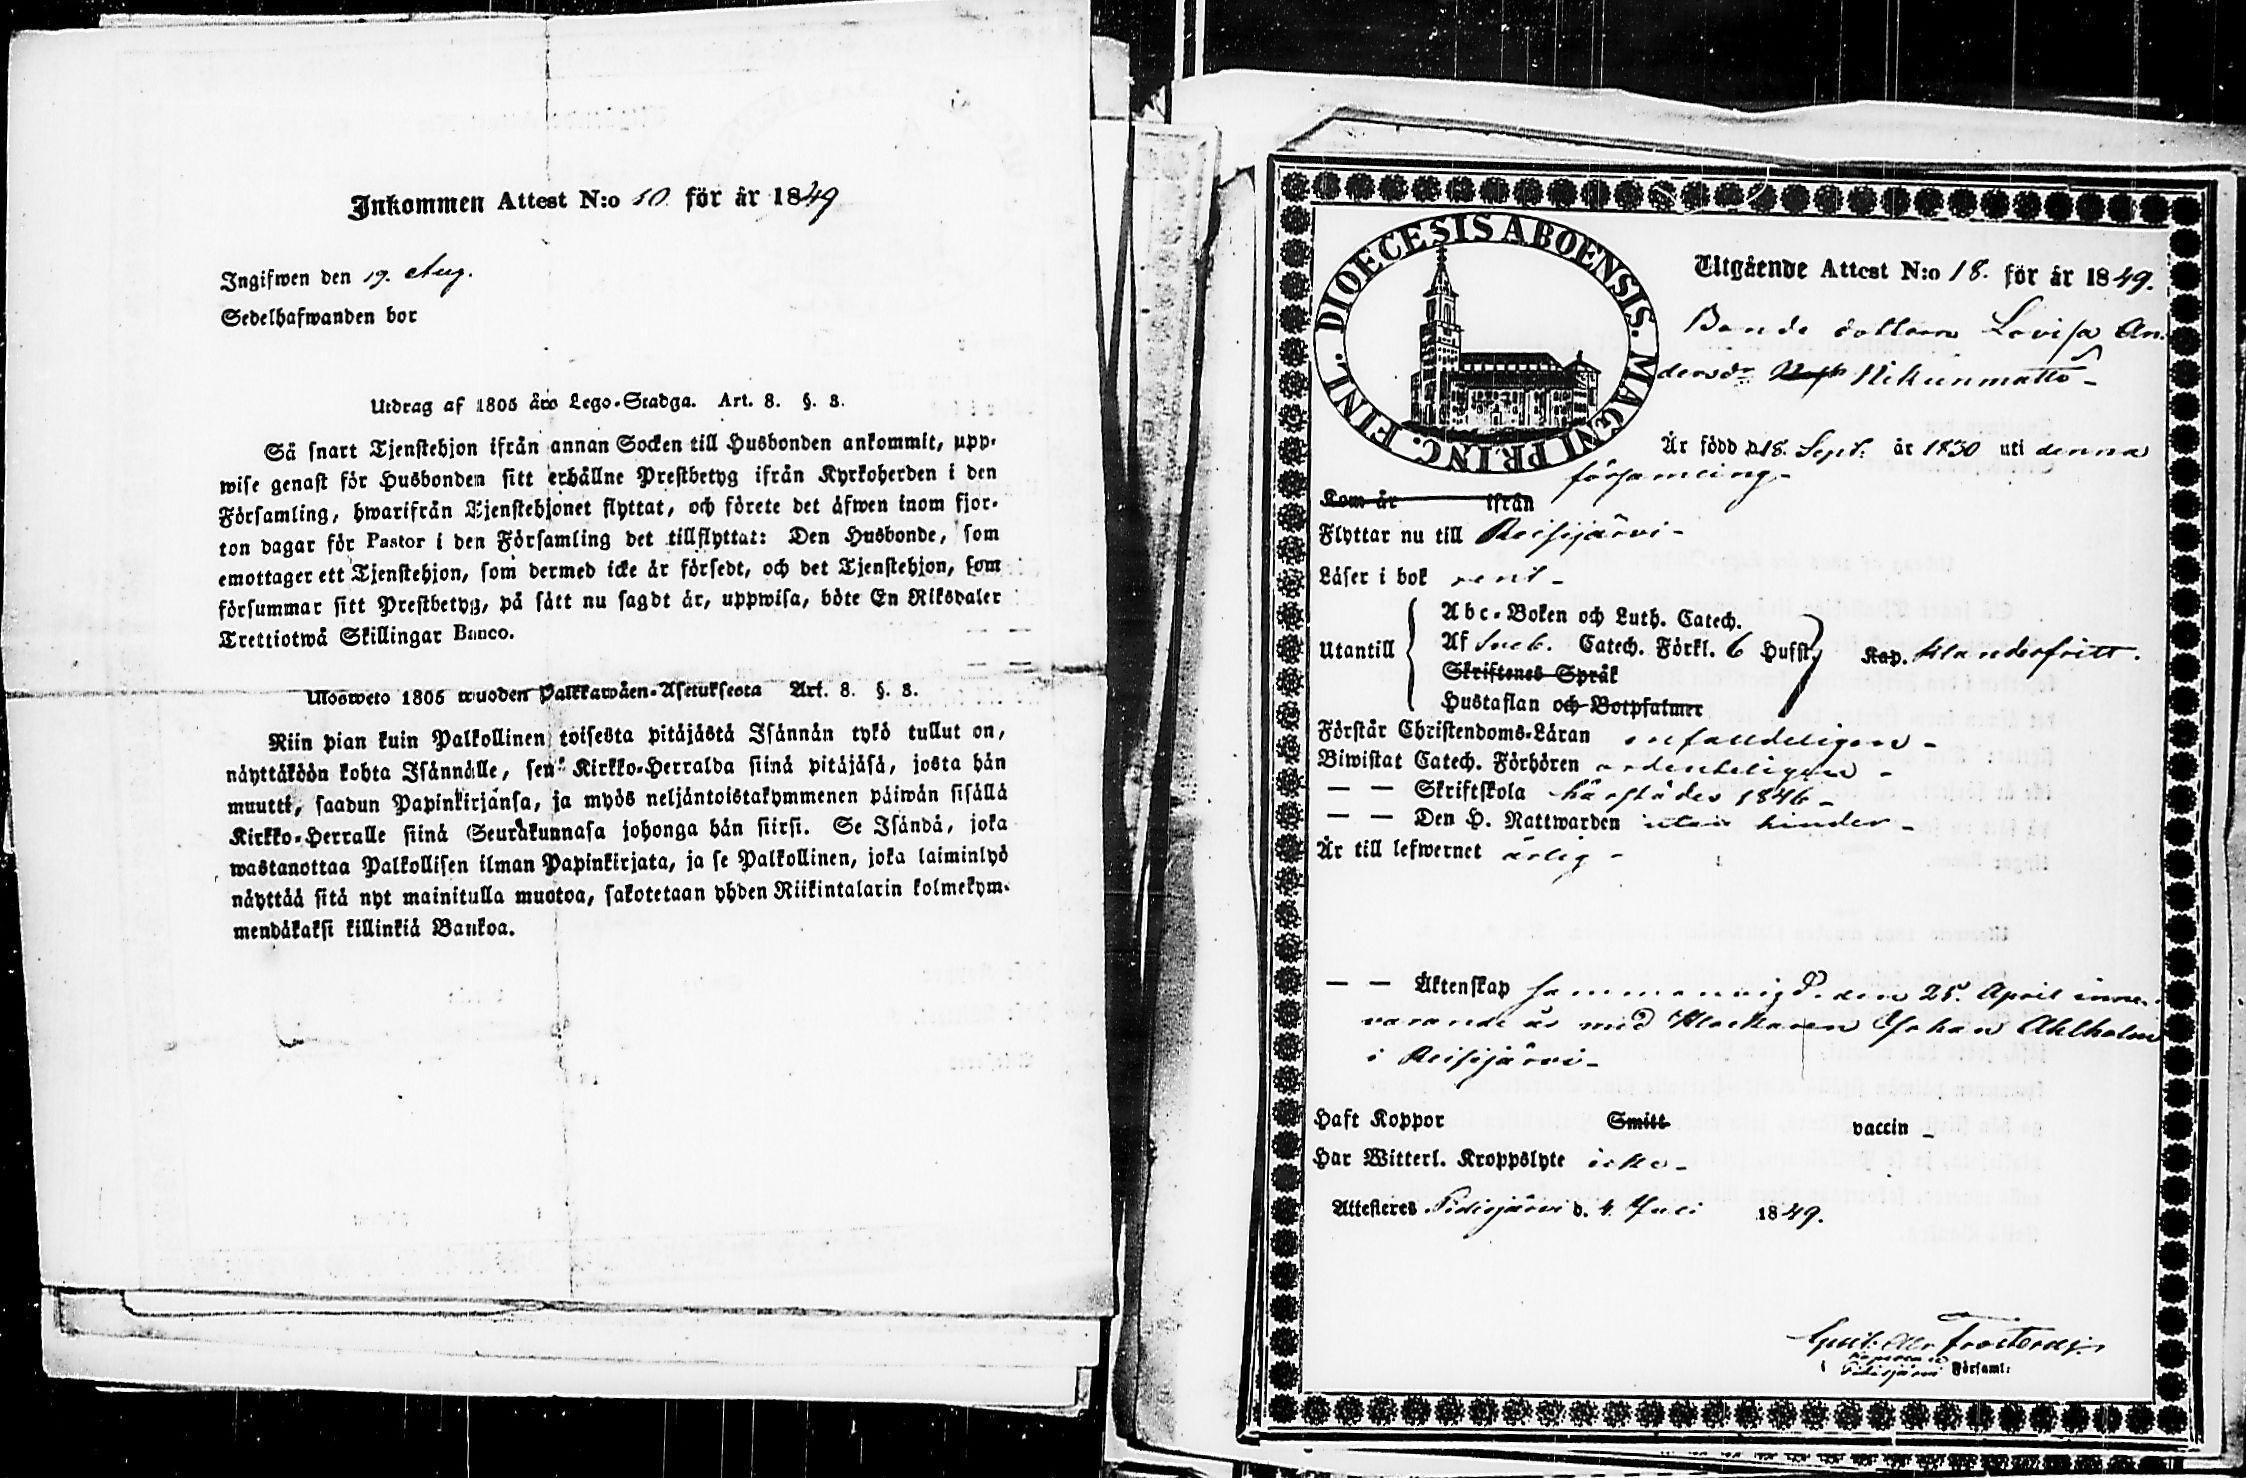 Inkommen Attest N:o 10 för år 1849
Ingifwen den 19. Aug.
Sedelhafwanden bor
Utdrag af 1805 års Lego-Stadga. Art. 8. §. 8.
Så snart Tjenstehjon ifrån annan Socken till Husbonden ankommit, upp-
wise genast för Husbonden sitt erhållne Prestbetyg ifrån Kyrkoherden i den
Församling, hwarifrån Tjenstehjonet flyttat, och förete det äfwen inom fjor-
ton dagar för Pastor i den Församling det tillflyttat: Den Husbonde, som
emottager ett Tjenstehjon, som dermed icke är försedt, och det Tjenstehjon, som
försummar sitt Prestbetyg, på sätt nu sagdt är, uppwisa, böte En Riksdaler
Trettiotwå Skillingar Banco.
Ulosweto 1805 wuoden Palkkawäen-Asetuksesta Art. 8. §. 8.
Niin pian kuin Palkollinen toisesta pitäjästä Isännän tykö tullut on,
näyttäköön kohta Isännälle, sen Kirkko-Herralda siinä pitäjäsä, josta hän
muutti, saadun Papinkirjansa, ja myös neljäntoistakymmenen päiwän sisällä
Kirkko-Herralle siinä Seurakunnasa johonga hän siirsi. Se Isändä, joka
wastanottaa Palkollisen ilman Papinkirjata, ja se Palkollinen, joka laiminlyö
näyttää sitä nyt mainitulla muotoa, sakotetaan yhden Riikintalarin kolmekym-
mendäkaksi killinkiä Bankoa.
DIOECESIS ABOENSIS. MAGNI PRINC. FINL.
Utgående Attest N:o 18. för år 1849.
Bonde dottern Lovisa An-
dersdr Nikunmatto
Är född d. 18. Sept. år 1830 uti denna
församling.
Kom år ifrån
Flyttar nu till Reisijärvi
Läser i bok rent
Utantill
Abc-Boken och Luth. Catech.
Af Sveb. Catech. Förkl. 6 Hufst. Kap. klanderfritt.
Skriftenes Språk
Hustaflan och Botpsalmer
Förstår Christendoms-Läran enfaldeligen
Biwistat Catech. Förhören ordenteligen
— — Skriftskola härstädes 1846
— — Den H. Nattwarden utan hinder
Är till lefwernet ärlig
— — Äktenskap sammanvigd den 25. April inne-
varande år med Klockaren Johan Ahlholm
i Reisijärvi
Haft Koppor Smitt vaccin
Har Witterl. Kroppslyte icke
Attesteras Pidisjärvi d. 4 Juli 1849.
Frosterus
i Pidisjärvi Församl: